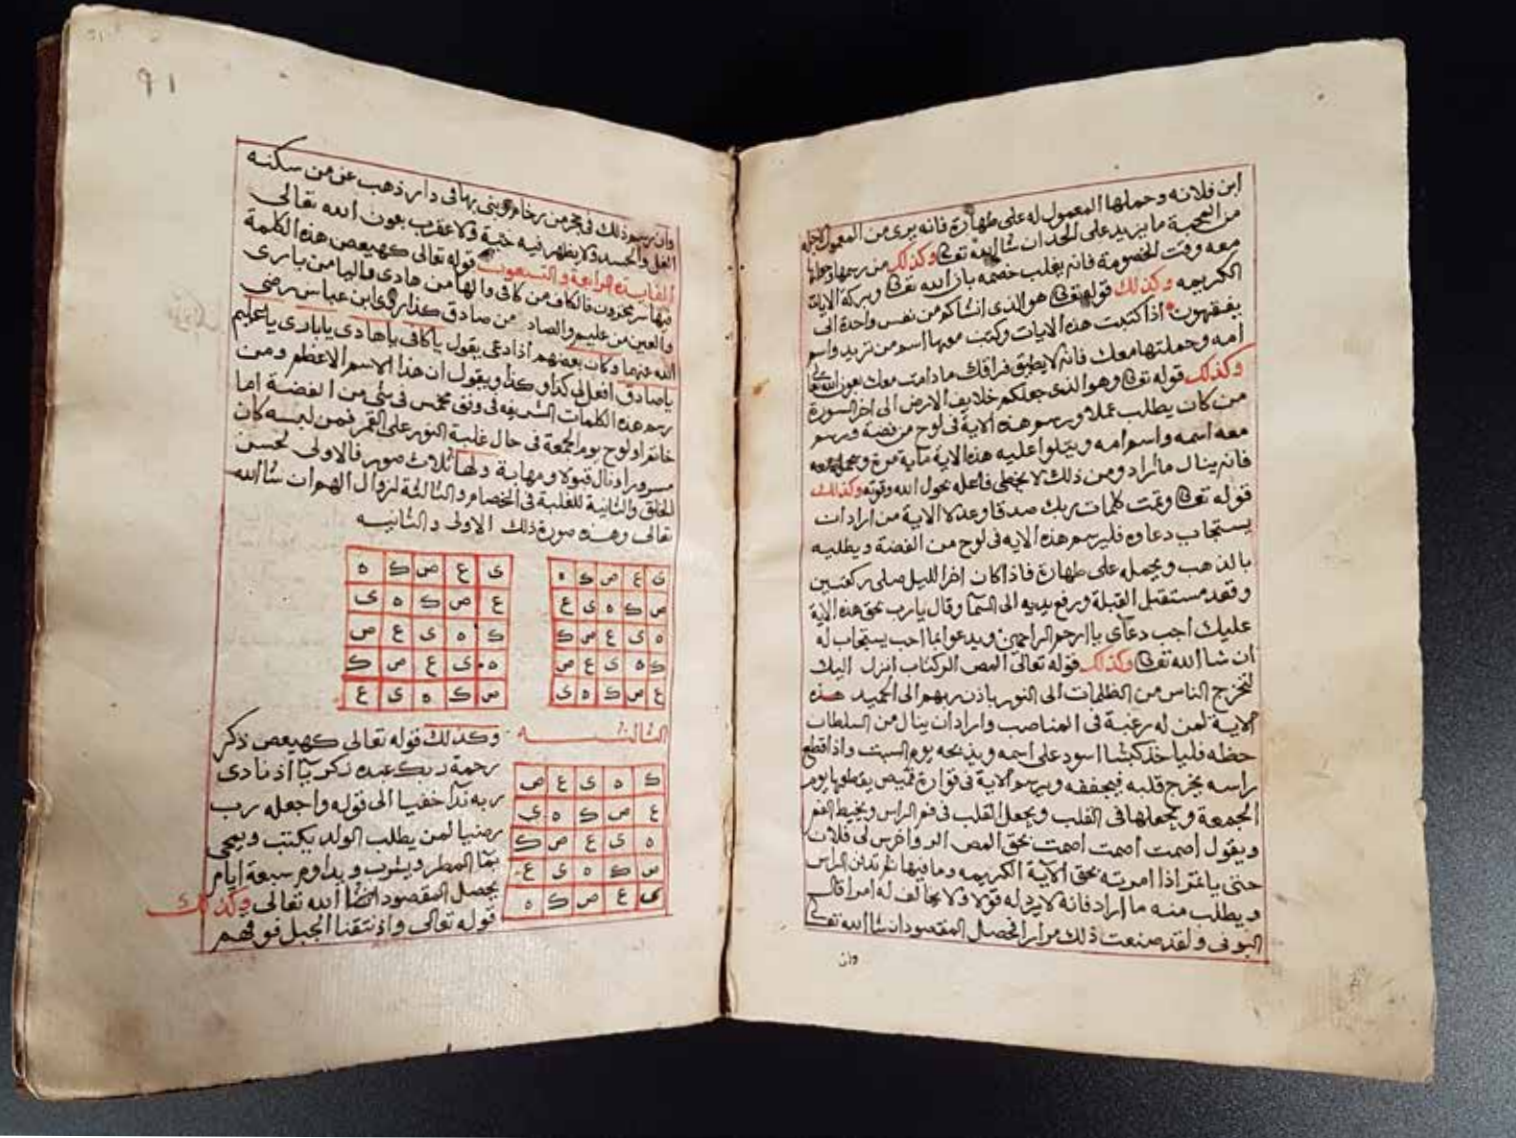 ابن فلانه وحملها المعمول له على طهارة فانه يرى من المعمول لاجله
من المحبة ما يزيد على الحد ان شا الله تعالى وكذلك من رسمها وحملها
معه وقت الخصومة فانه يغلب خصمه باذن الله تعالى وبركة الايات
الكريمه وكذلك قوله تعالى هو الذى انشاكم من نفس واحدة الى
يفقهون اذا كتبت هذه الايات وكتبت معها اسم من تريد واسم
امه وحملتها معك فانه لا يطيق فراقك ما دامت معك بعون الله تعالى
وكذلك قوله تعالى وهو الذى جعلكم خلايف الارض الى اخر السورة
من كان يطلب عملا ورسم هذه الاية فى لوح من فضة ورسم
معه اسمه واسم امه ويتلوا عليه هذه الاية ماية مرة ويحمله معه
فانه ينال ما اراد ومن ذلك لا يخطى فاعله بحول الله وقوته وكذلك
قوله تعالى وتمت كلمات ربك صدقا وعدلا الاية من اراد ان
يستجاب دعاوه فليرسم هذه الايه فى لوح من الفضة ويطليه
بالذهب ويحمله على طهارة فاذا كان اخر الليل صلى ركعتين
وقعد مستقبل القبلة ورفع يديه الى السما وقال يارب بحق هذه الاية
عليك اجب دعاى يا ارحم الراحمين ويدعوا بما احب يستجاب له
ان شا الله تعالى وكذلك قوله تعالى المص الر كتاب انزل اليك
لتخرج الناس من الظلمات الى النور باذن ربهم الى الحميد هذه
الاية لمن له رغبة فى المناصب واراد ان ينال من السلطان
حظه فلياخذ كبشا اسود على اسمه ويذبحه يوم السبت واذا قطع
راسه يخرج قلبه فيجففه ويرسم الاية فى قوارة قميص يقطعها يوم
الجمعة ويجعلها فى القلب ويجعل القلب فى فم الراس ويخيط الفم
ويقول اصمت اصمت اصمت بحق المص الر واخرس لى فلان
حتى ياتمر اذا امرته بحق الآية الكريمه وما فيها ثم تدفن الراس
ويطلب منه ما اراد فانه لا يرد له قولا ولا يخالف له امرا قال
البونى ولقد صنعت ذلك مرارا فحصل المقصود ان شا الله تعالى
وان
٩١
وان رسم ذلك فى حجر من رخام وبنى بها فى دار ذهب عن من سكنه
الغل والحسد ولا يظهر فيه حية ولا عقرب بعون الله تعالى
الفايده الرابعة والتسعون قوله تعالى كهيعص هذه الكلمة
فيها سر مخزون فالكاف من كافى والها من هادى واليا من بارى
والعين من عليم والصاد من صادق كذا روى ابن عباس رضى
الله عنهما وكان بعضهم اذا دعى يقول ياكافى ياهادى يابارى ياعليم
ياصادق افعل لى كذا وكذا ويقول ان هذا الاسم الاعظم ومن
رسم هذه الكلمات الشريفه فى وفق مخمس فى شى من الفضة اما
خاتم او لوح يوم الجمعة فى حال غلبة النور على القمر فمن لبسه كان
مسرورا ونال قبولا ومهابة ولها ثلاث صور فالاولى لحسن
الخلق والثانية للغلبة فى الخصام والثالثة لزوال الهم ان شا الله
تعالى وهذه صورة ذلك الاولى والثانيه
ى ع ص ك ه
ص ك ه ى ع
ه ى ع ص ك
ك ه ى ع ص
ع ص ك ه ى
ى ع ص ك ه
ع ص ك ه ى
ك ه ى ع ص
ه ى ع ص ك
ص ك ه ى ع
الثالثه
ك ه ى ع ص
ع ص ك ه ى
ه ى ع ص ك
ص ك ه ى ع
ى ع ص ك ه
وكذلك قوله تعالى كهيعص ذكر
رحمة ربك عبده زكريا اذ نادى
ربه ندا خفيا الى قوله واجعله رب
رضيا لمن يطلب الولد يكتب ويمحى
بما المطر ويشرب ويداوم سبعة ايام
يحصل المقصود ان شا الله تعالى وكذلك
قوله تعالى واذ نتقنا الجبل فوقهم